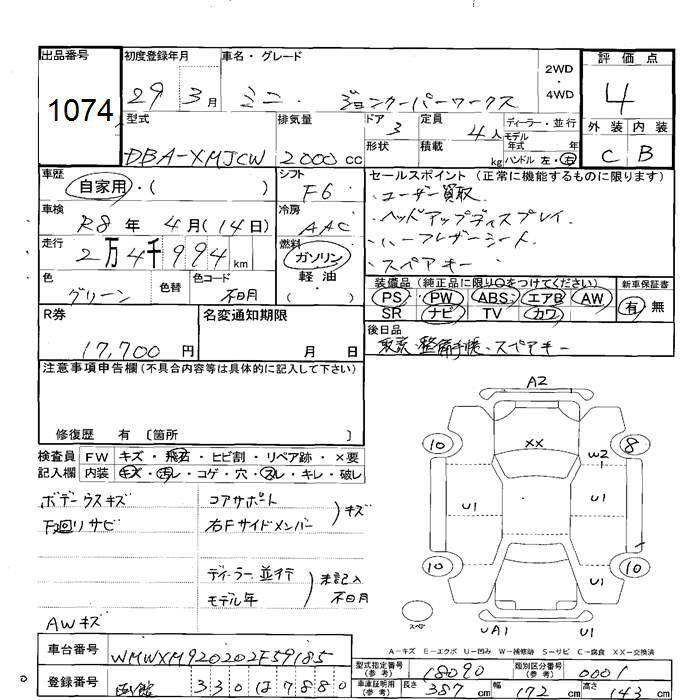 出品番号
1074
初度登録年月
29 3月
車名・グレード
ミニ ジョンクーパーワークス
2WD
・
4WD
評価点
4
外装 内装
C B
型式
DBA-XMJCW
排気量
2000 cc
ドア 3
形状
定員 4人
積載 kg
ディーラー・並行
モデル年式 年
ハンドル 左・右
車歴
自家用・( )
車検
R8年 4月(14日)
走行
2万4千994km
色
グリーン
色替
色コード
不明
シフト
F6
冷房
AAC
燃料
ガソリン
軽・油
( )
セールスポイント (正常に機能するものに限ります)
・ユーザー買取
・ヘッドアップディスプレイ
・ハーフレザーシート
・スペアキー
装備品(純正品に限り○をつけてください)
PS・PW・ABS・エアB・AW
SR・ナビ・TV・カワ
新車保証書
有・無
後日品
・整備手帳・スペアキー
R券
17,700円
名変通知期限
月 日
注意事項申告欄(不具合内容等は具体的に記入して下さい)
修復歴 有 〔箇所 〕
検査員
記入欄
FW キズ・飛石・ヒビ割・リペア跡・×要
内装 キズ・汚レ・コゲ・穴・スレ・キレ・破レ
ボデーウスキズ
下廻りサビ
AWキズ
コアサポート
右Fサイドメンバー
キズ
ディーラー並行
モデル年
未記入
不明
A2
10
8
XX
W2
U1
U1
10
10
U1
UA1
U1
スペア
A-キズ E-エクボ U-凹み W-補修跡 S-サビ C-腐食 XX-交換済
車台番号
WMWXM920202F59185
登録番号
函館 330 は 7880
型式指定番号
(参考)
18090
類別区分番号
(参考)
0001
車庫証明用
(参考)
長さ 387cm
幅 172cm
高さ 143cm